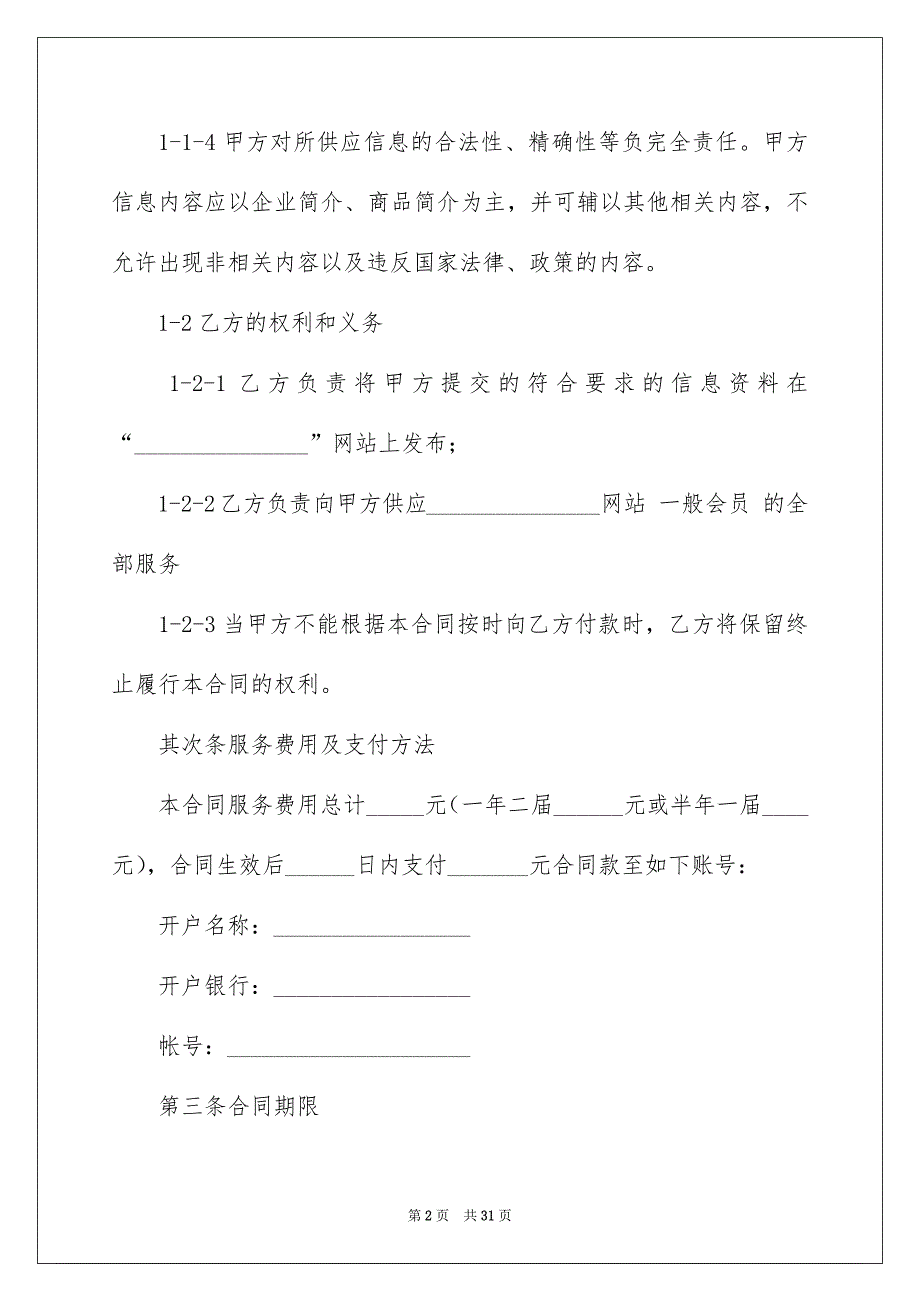 1-1-4甲方对所供应信息的合法性、精确性等负完全责任。甲方
信息内容应以企业简介、商品简介为主，并可辅以其他相关内容，不
允许出现非相关内容以及违反国家法律、政策的内容。
1-2乙方的权利和义务
1-2-1乙方负责将甲方提交的符合要求的信息资料在
“_______________”网站上发布；
1-2-2乙方负责向甲方供应_______________网站 一般会员 的全
部服务
1-2-3当甲方不能根据本合同按时向乙方付款时，乙方将保留终
止履行本合同的权利。
其次条服务费用及支付方法
本合同服务费用总计_____元(一年二届______元或半年一届____
元)，合同生效后______日内支付_______元合同款至如下账号：
开户名称：_________________
开户银行：_________________
帐号：_____________________
第三条合同期限
第 2 页 共 31 页